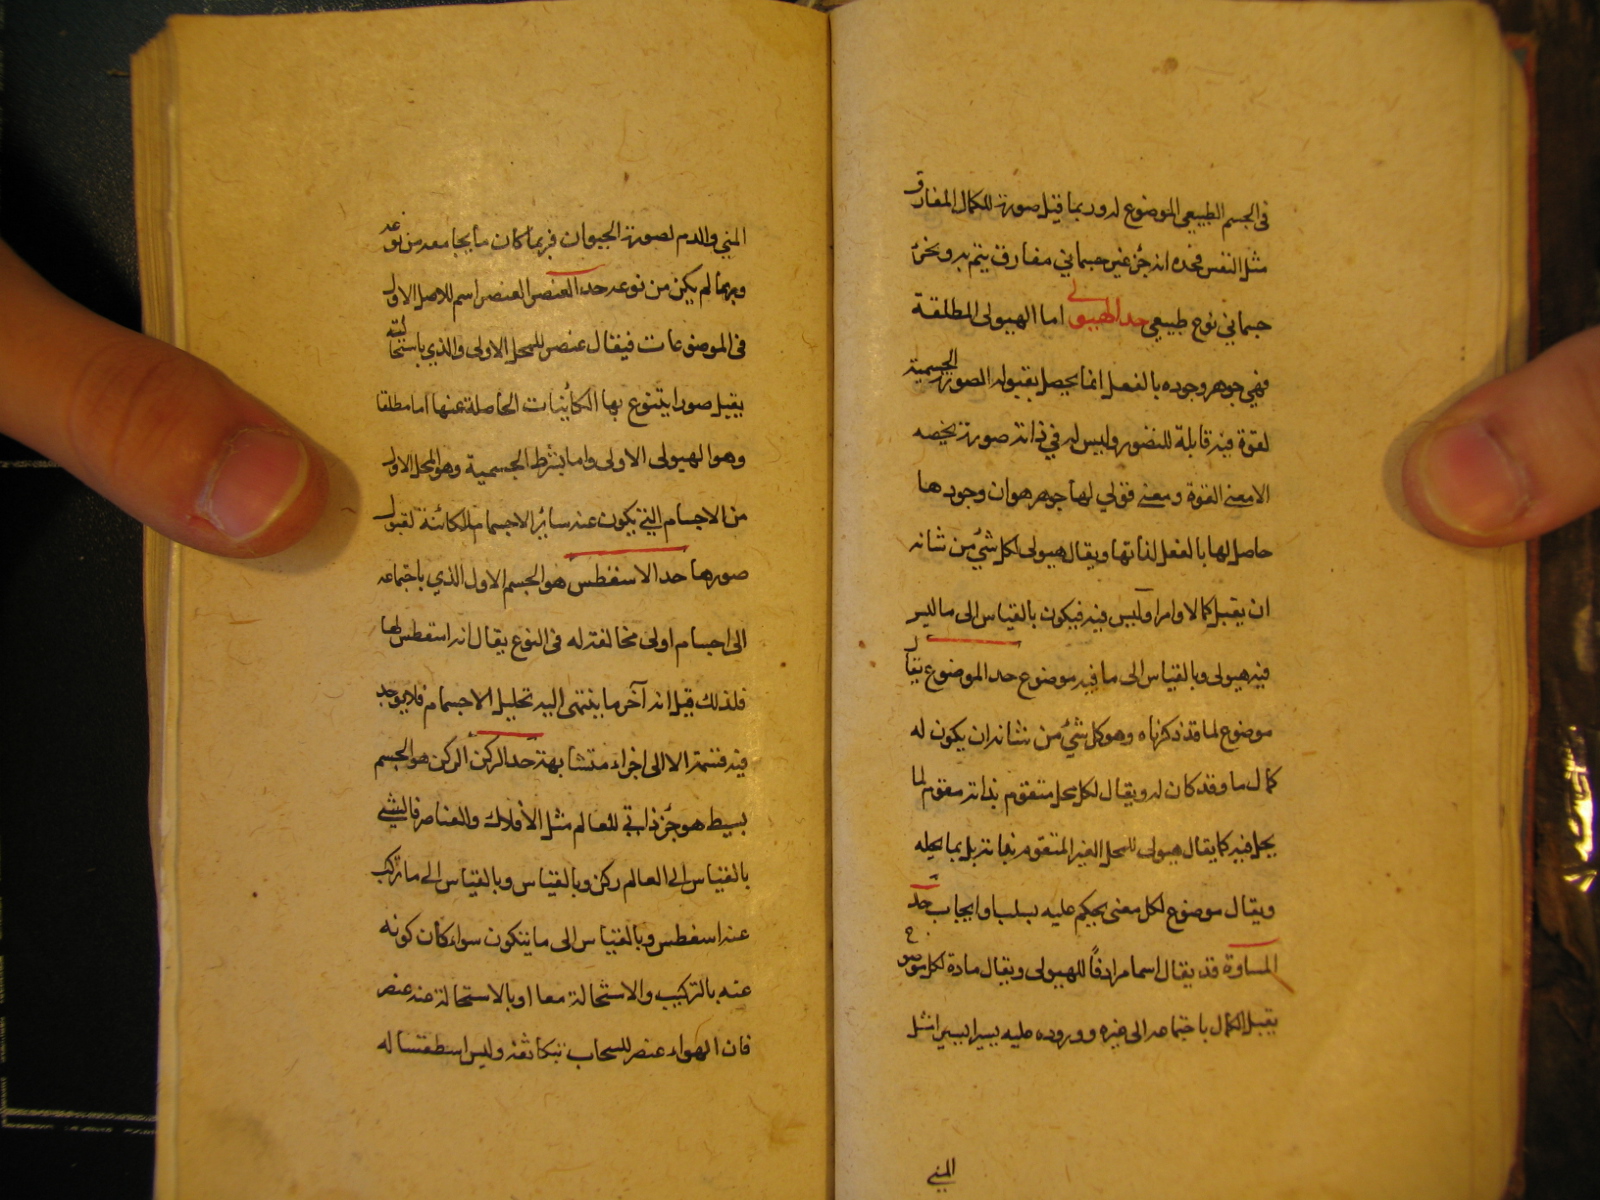 فى الجسم الطبيعى الموضوع له وربما قيل صورة للكمال المفارق
مثل النفس فحده انه جزء غير جسماني مفارق يتم به وبجزء
جسماني نوع طبيعي حد الهيولى اما الهيولى المطلقة
فهي جوهر وجوده بالفعل انما يحصل بقبوله الصورة الجسمية
لقوة فيه قابلة للصور وليس له في ذاته صورة تخصه
الا معنى القوة ومعنى قولي لها جوهر هو ان وجودها
حاصل لها بالفعل لذاتها ويقال هيولى لكل شئ من شانه
ان يقبل كمالا وامرا وليس فيه فيكون بالقياس الى ما ليس
فيه هيولى وبالقياس الى ما فيه موضوع حد الموضوع يقال
موضوع لما قد ذكرناه وهو كل شئ من شانه ان يكون له
كمال ما وقد كان له ويقال لكل محل متقوم بذاته مقوم لما
يحل فيه كما يقال هيولى للمحل الغير المتقوم بذاته بل بما يحله
ويقال موضوع لكل معنى يحكم عليه بسلب او ايجاب حد
المادة قد يقال اسما مرادفا للهيولى ويقال مادة لكل موضوع
يقبل الكمال باجتماعه الى غيره ووروده عليه يسيرا يسيرا مثل
المني
المني والدم لصورة الحيوان فربما كان ما يجامعه من نوعه
وربما لم يكن من نوعه حد العنصر العنصر اسم للاصل الاول
فى الموضوعات فيقال عنصر للمحل الاولى والذي باستحالته
يقبل صورا يتنوع بها الكائنات الحاصلة عنها اما مطلقا
وهو الهيولى الاولى واما بشرط الجسمية وهو المحل الاول
من الاجسام التي يكون عنه سائر الاجسام الكائنة لقبول
صورها حد الاسقطس هو الجسم الاول الذي باجتماعه
الى اجسام اولى مخالفة له فى النوع يقال انه اسقطس لها
فلذلك قيل انه آخر ما ينتهى اليه تحليل الاجسام فلا يوجد
فيه قسمة الا الى اجزاء متشابهة حد الركن الركن هو الجسم
بسيط هو جزء ذاتي للعالم مثل الأفلاك والعناصر فالشيء
بالقياس الى العالم ركن وبالقياس وبالقياس الى ما تركب
عنه اسقطس وبالقياس الى ما يتكون سواء كان كونه
عنه بالتركيب والاستحالة معا او بالاستحالة عنه عنصر
فان الهواء عنصر للسحاب بتكاثفه وليس اسطقسا له